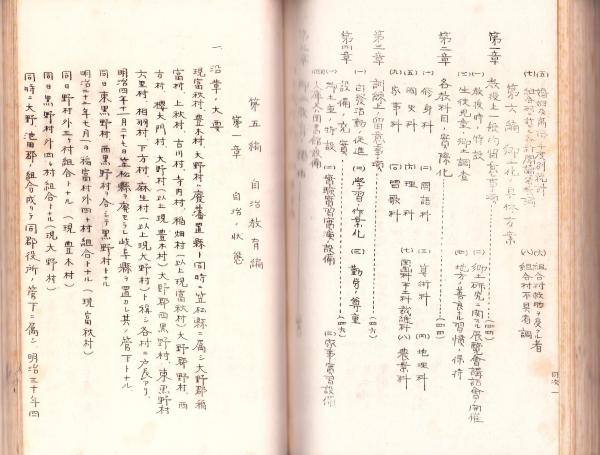 (五)
(七)
(六) 組合村救助ヲ受クル者
(八) 組合村不具者調
第六編 郷土化具体方案
第一章 教授上一般的留意事項
(一) 教授時ノ特設
(二) 郷土研究ニ関スル展覧会講話会ノ開催
(三) 生徒児童ノ郷土調査
(四) 地方ノ善良ナル習慣ノ保持
第二章 各教科目ノ実際化
(一) 修身科
(二) 国語科
(三) 算術科
(四) 地理科
(五) 国史科
(六) 理科
(七) 図画科手工科裁縫科
(八) 農業科
(九) 家事科
(十) 唱歌科
第三章 訓練上ノ留意事項
(一) 自発活動ノ促進
(二) 学習ノ作業化
(三) 勤労ノ尊重
第四章 設備ノ充実
(一) 郷土室ノ特設
(二) 実験実習実演設備
(三) 家事実習設備
目次
第五編 自治教育編
第一章 自治ノ状態
一 沿革ノ大要
現富秋村、豊木村、大野村ハ廃藩置県ト同時ニ笠松県ニ属シ大野郡稲
富村、上秋村、古川村、寺内村、稲畑村(以上現富秋村)大野郡野村、西
方村、桜大門村、大野村(以上現豊木村)大野郡黒野村、東黒野村
六里村、相羽村、下方村、麻生村(以上現大野村)ト称シ各村ニ戸長アリ、
明治四年十一月二十二日笠松県ヲ廃セラレ岐阜県ヲ置カレ其ノ管下トナル
同日東黒野村、西黒野村ヲ合シテ黒野村トナル
明治二十二年七月一日稲富村外四ヶ村組合トナル(現富秋村)
同日野村外三ヶ村組合トナル(現豊木村)
同日黒野村外四ヶ村組合トナル(現大野村)
同時ニ大野、池田郡ノ組合成リテ同郡役所ノ管下ニ属シ、明治三十年四